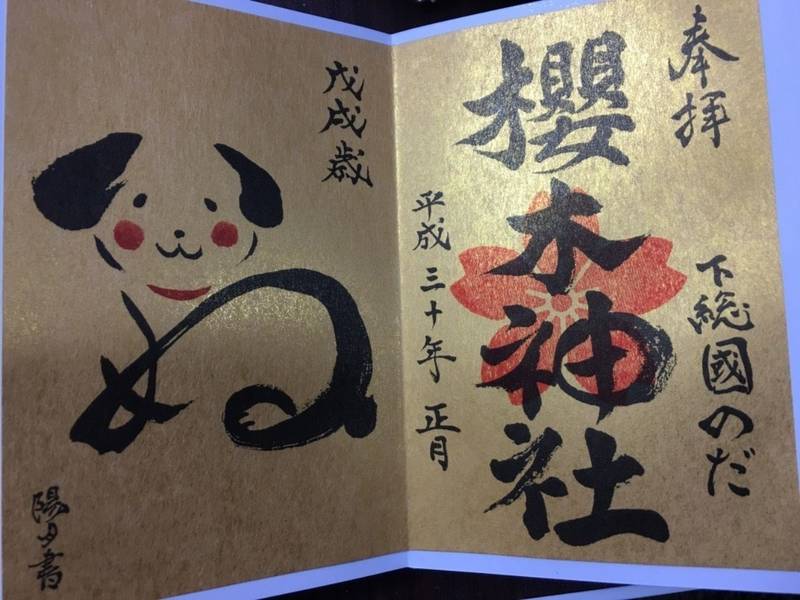 奉拝
下総國のだ
櫻木神社
平成三十年正月
戊戌歳
いぬ
陽 書